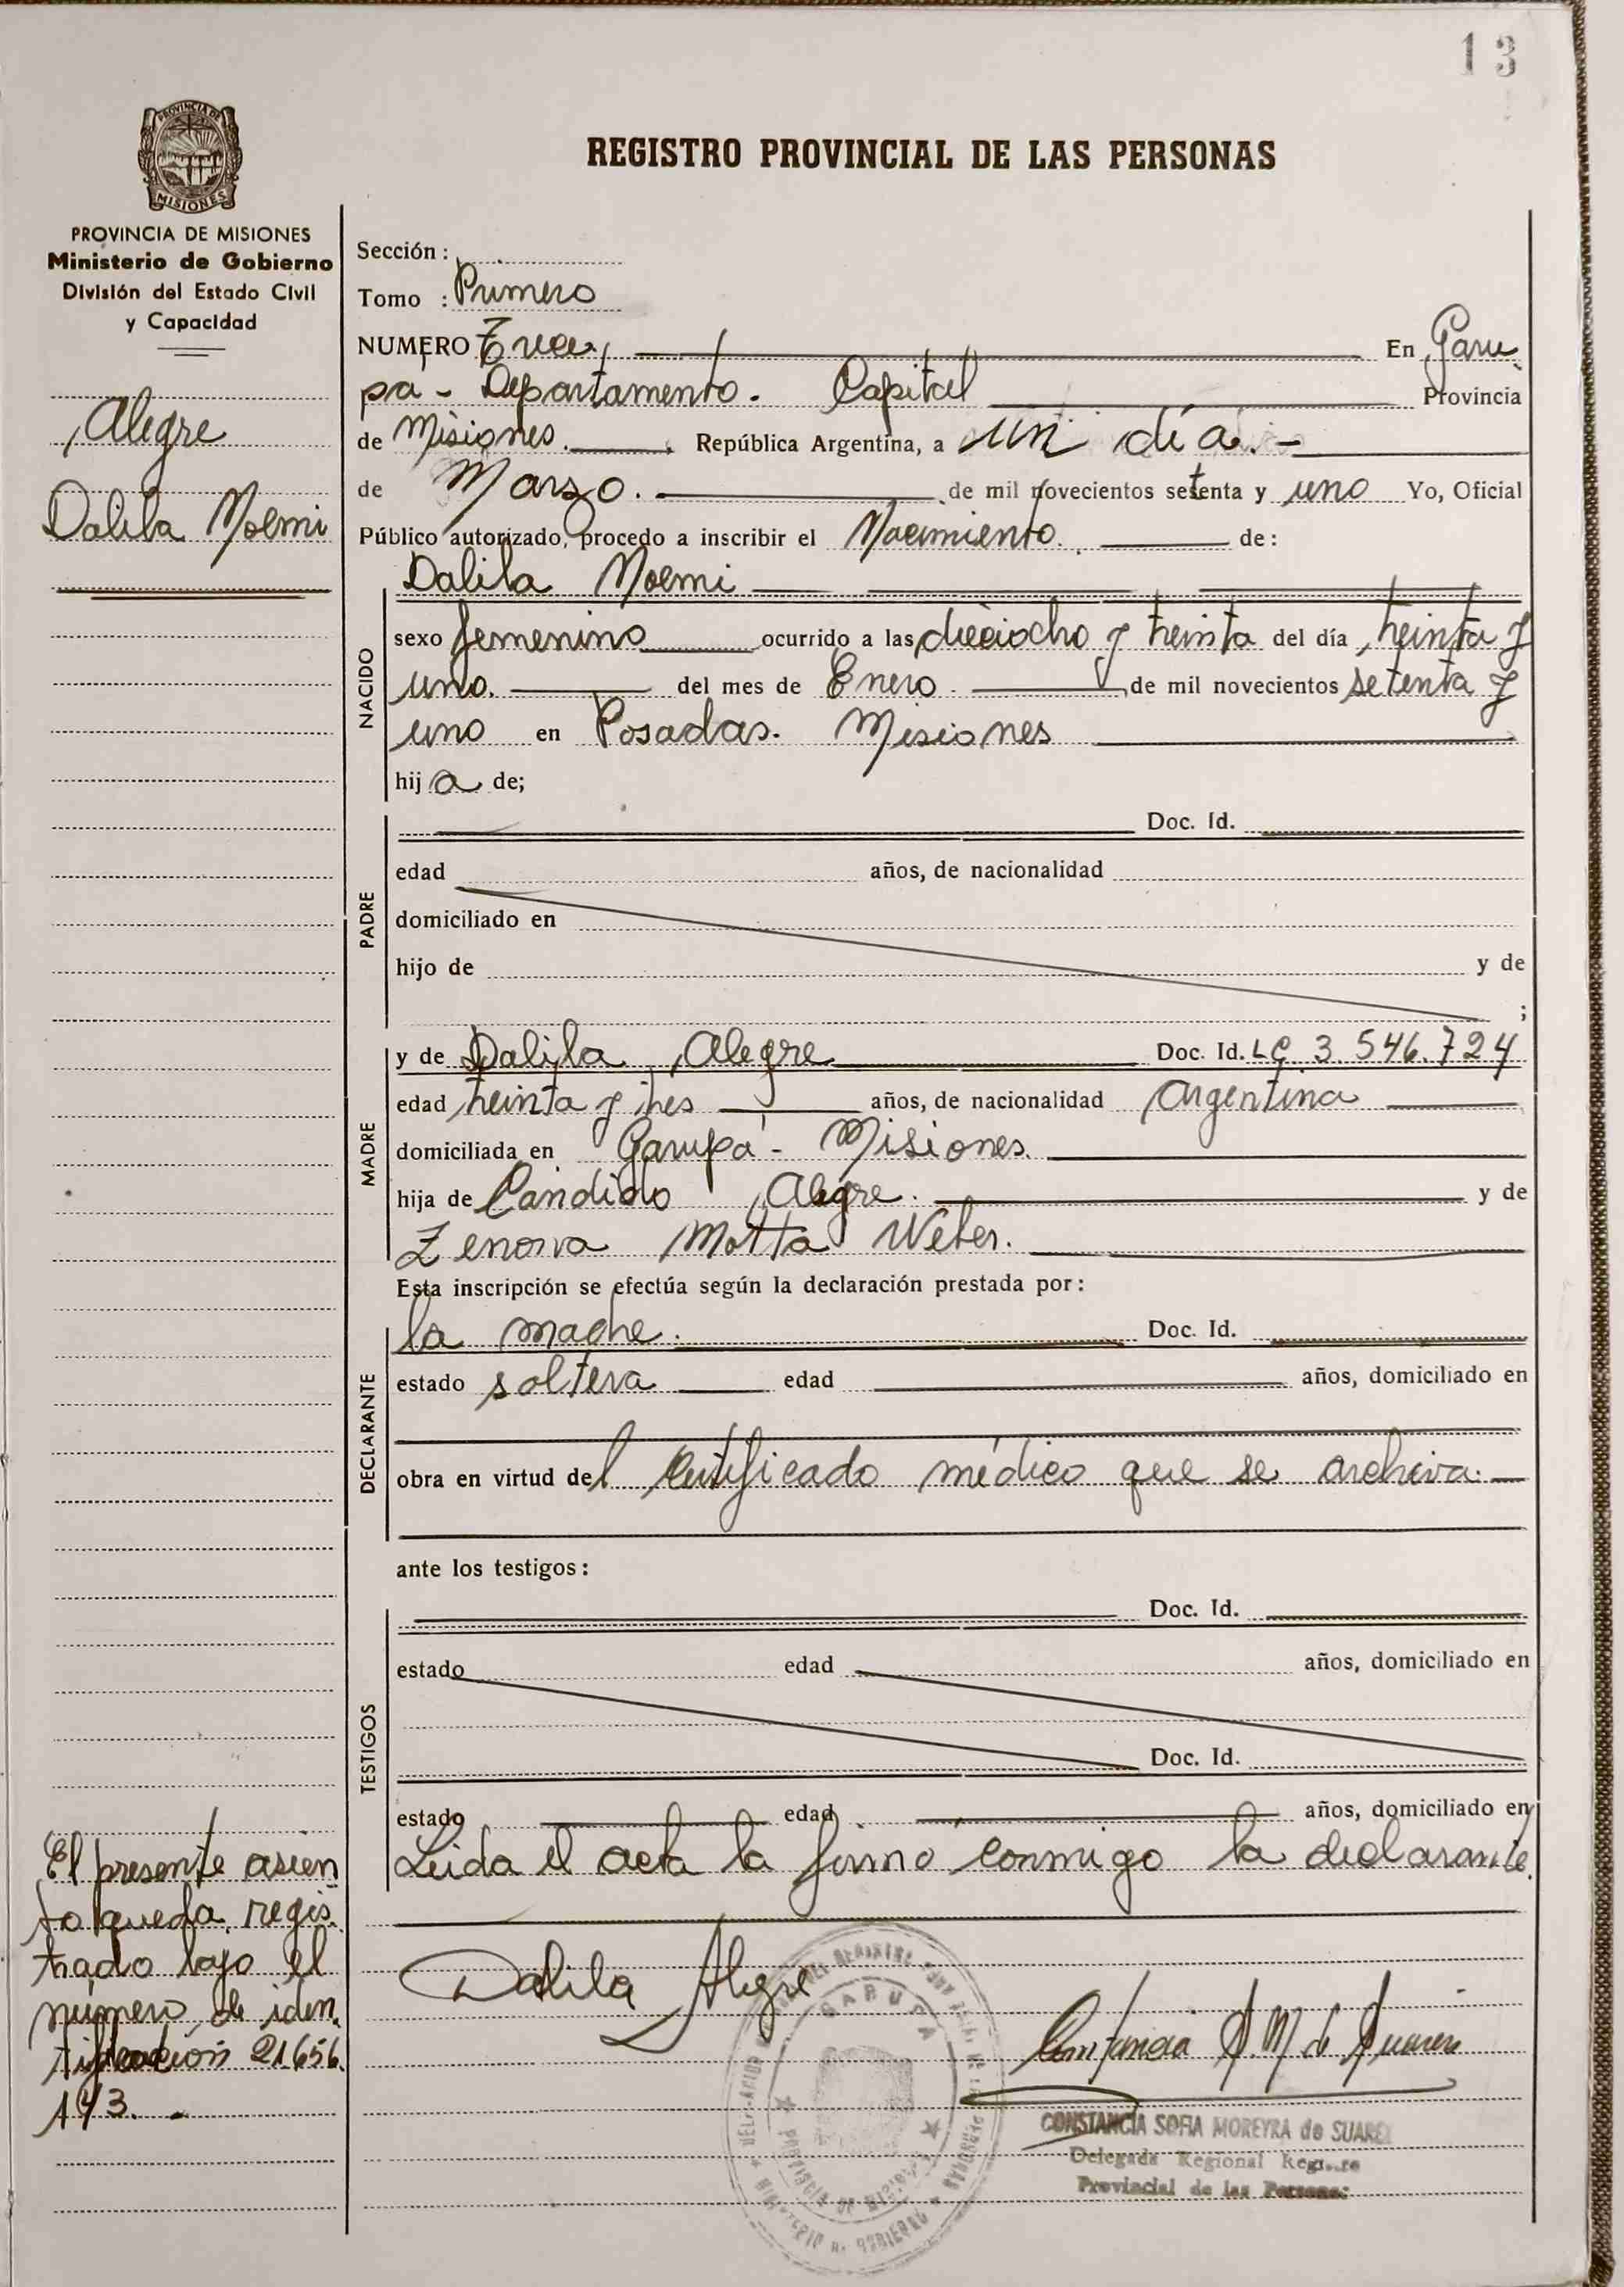 13
PROVINCIA DE
MISIONES
REGISTRO PROVINCIAL DE LAS PERSONAS
PROVINCIA DE MISIONES
Ministerio de Gobierno
División del Estado Civil
y Capacidad
Alegre
Dalila Noemi
Sección :
Tomo : Primero
NUMERO Trece, En Garu
pa - Departamento. Capital Provincia
de Misiones. República Argentina, a un día.-
de Marzo. de mil novecientos setenta y uno Yo, Oficial
Público autorizado, procedo a inscribir el Nacimiento. de:
Dalila Noemi
NACIDO
sexo femenino ocurrido a las dieciocho y treinta del día treinta y
uno. del mes de Enero. de mil novecientos setenta y
uno en Posadas. Misiones
hija de;
PADRE
Doc. Id.
edad años, de nacionalidad
domiciliado en
hijo de y de
;
MADRE
y de Dalila Alegre Doc. Id. LC 3.546.724
edad treinta y tres años, de nacionalidad Argentina
domiciliada en Garupá - Misiones.
hija de Candido Alegre. y de
Zenova Motta Weber.
Esta inscripción se efectúa según la declaración prestada por:
DECLARANTE
la madre. Doc. Id.
estado soltera edad años, domiciliado en
obra en virtud del certificado médico que se archiva.
ante los testigos:
TESTIGOS
Doc. Id.
estado edad años, domiciliado en
Doc. Id.
estado edad años, domiciliado en
Leida el acta la firmó conmigo la declarante.
El presente asien
to queda regis.
trado bajo el
número de iden.
tificación 21.656.
143. -
Dalila Alegre
Constancia S. M. de Suarez
GARUPA
PROVINCIA DE MISIONES
MINISTERIO DE GOBIERNO
CONSTANCIA SOFIA MOREYRA de SUAREZ
Delegada Regional Registro
Provincial de las Personas